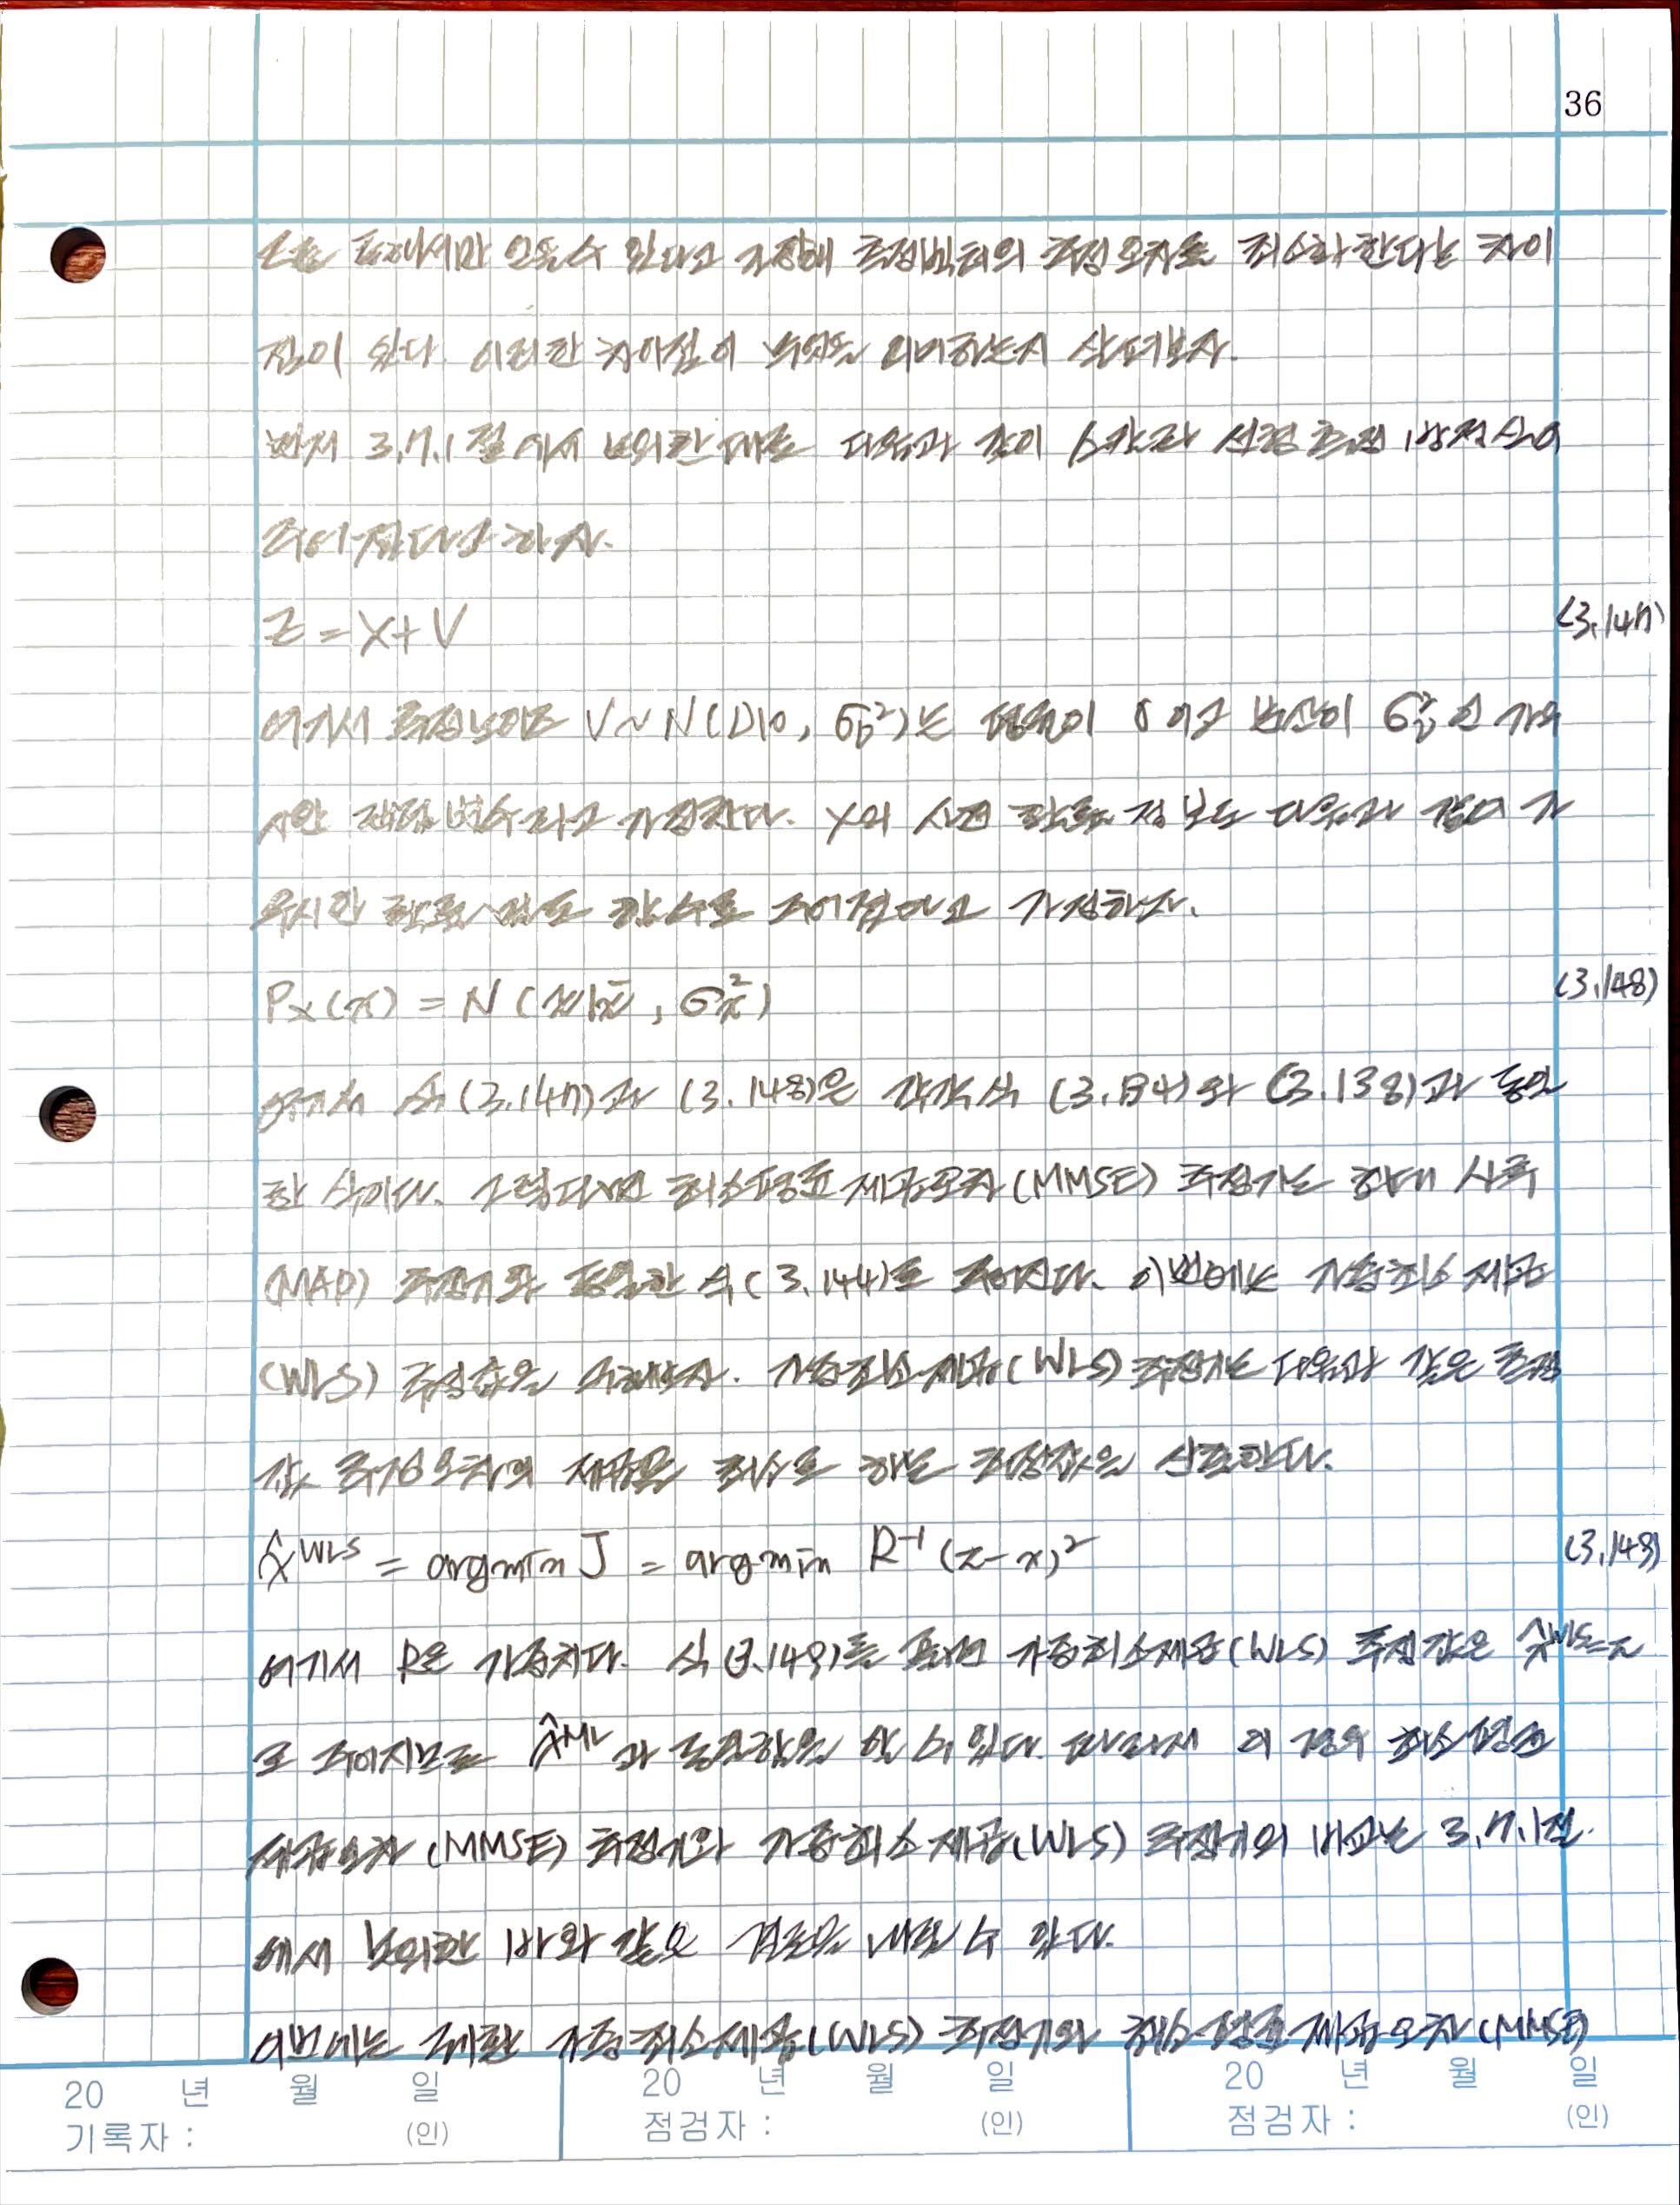 36
통해서만 얻을수 있다고 가정해 추정벡터의 추정오차를 최소화한다는 차이
점이 있다. 이러한 차이점이 무엇을 의미하는지 살펴보자.
먼저 3.7.1절에서 논의한대로 다음과 같이 스칼라 선형 측정 방정식이
주어진다고 하자.
Z = X + V (3.147)
여기서 측정노이즈 V~N(v|0, σv²)는 평균이 0이고 분산이 σv²인 가우
시안 랜덤변수라고 가정한다. X의 사전 확률정보는 다음과 같이 가
우시안 확률 밀도 함수로 주어졌다고 가정하자.
Px(x) = N(x|x̄, σx²) (3.148)
여기서 식 (3.147)과 (3.148)은 각각 식 (3.134)와 (3.138)과 동일
한 식이다. 그렇다면 최소평균제곱오차(MMSE) 추정기는 최대사후
(MAP) 추정기와 동일한 식(3.144)로 주어진다. 이번에는 가중최소제곱
(WLS) 추정값을 구해보자. 가중최소제곱(WLS) 추정기는 다음과 같은 측정
값 추정오차의 제곱을 최소로 하는 추정값을 산출한다.
x̂^WLS = argmin J = argmin R⁻¹(z-x)² (3.149)
여기서 R은 가중치다. 식 (3.149)를 풀면 가중최소제곱(WLS) 추정값은 x̂^WLS=z
로 주어지므로 x̂^ML과 동일함을 알 수 있다. 따라서 이 경우 최소평균
제곱오차(MMSE) 추정기와 가중최소제곱(WLS) 추정기의 비교는 3.7.1절
에서 논의한 바와 같은 결론을 내릴 수 있다.
이번에는 가중최소제곱(WLS) 추정기와 최소평균제곱오차(MMSE)
20 년 월 일 20 년 월 일 20 년 월 일
기록자 : (인) 점검자 : (인) 점검자 : (인)